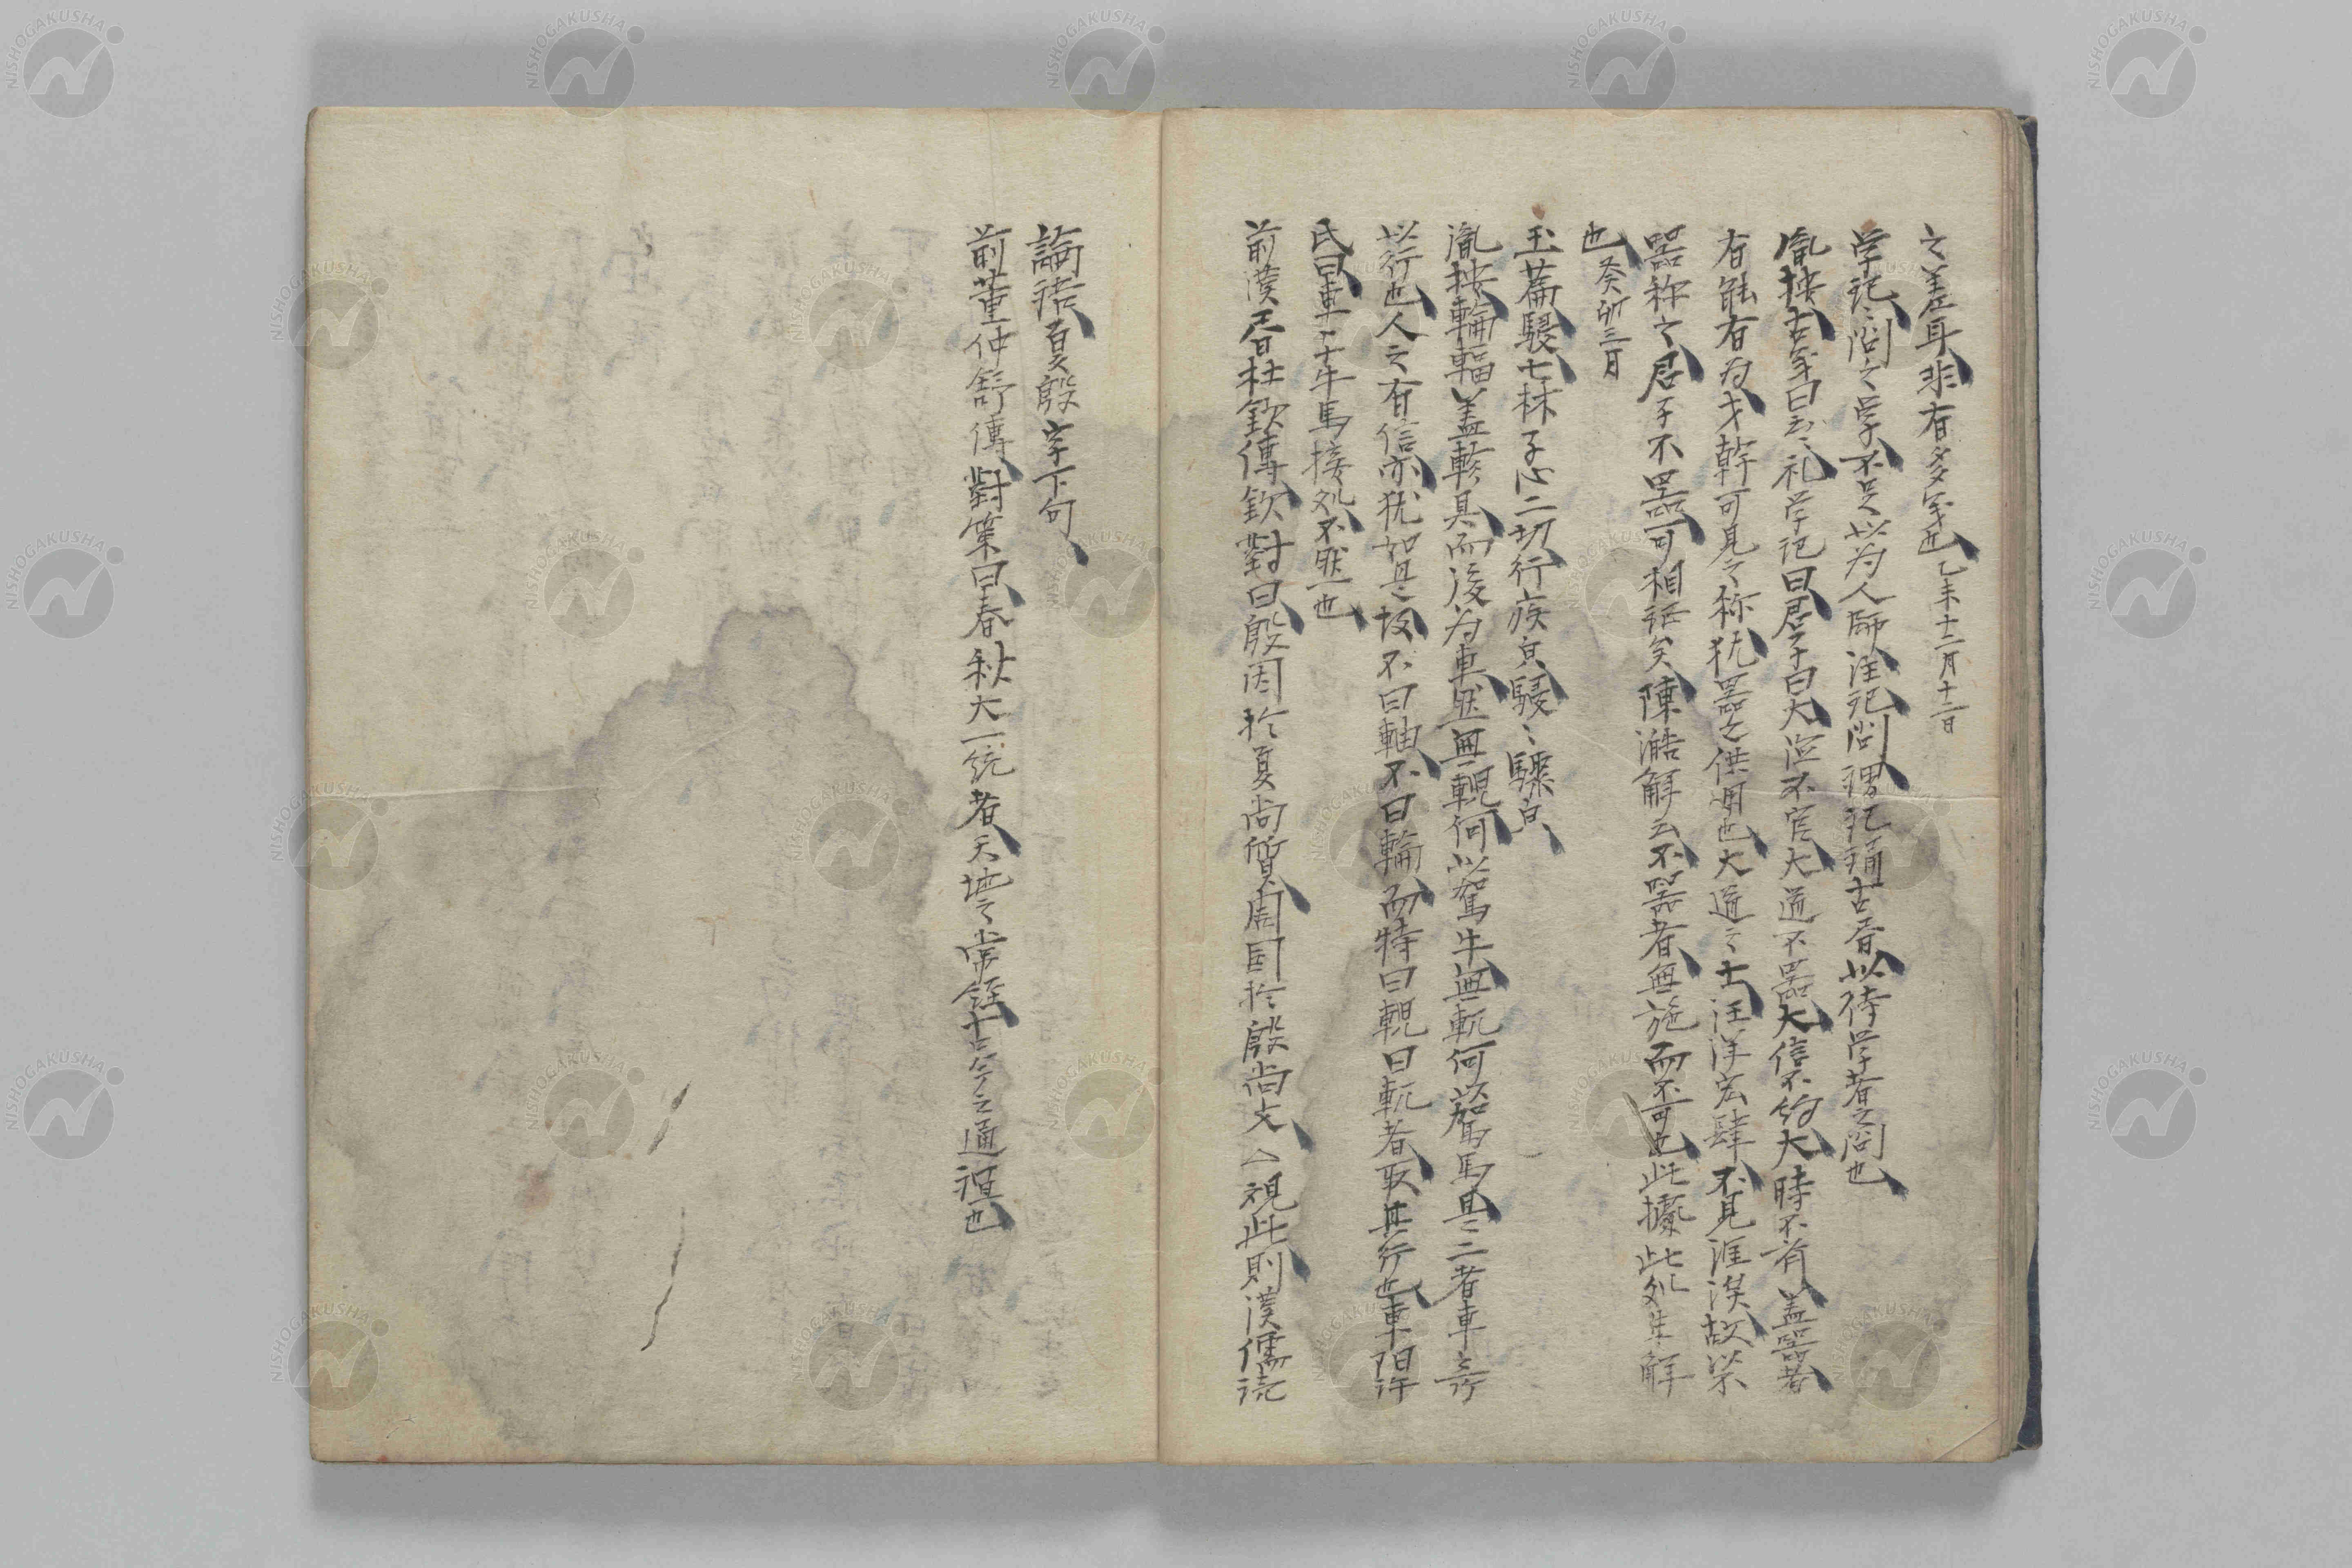 之差耳非有多寡也乙未十二月十二日
学記記問之学不足以為人師注記問謂記誦古書以待学者之問也
胤按古義曰云云礼学記曰君子曰大德不官大道不器大信不約大時不斉蓋器者
有能有為才幹可見之称犹器之供用也大道之士汪洋宏肆不見涯涘故以不
器称之君子不器可相証矣陳澔解云不器者無施而不可也此據此処朱解
也癸卯三月
玉篇駸七林子心二切行疾皃駸駸驟皃
胤按輪輻蓋軫具而後為車然無輗何以駕牛無軏何以駕馬是二者車之所
以行也人之有信亦犹如是故不曰軸不曰輪而特曰輗曰軏者取其行也車陽許
氏曰車与牛馬接処不然也
前漢書杜欽傳欽對曰殷因於夏尚質周因於殷尚文云云視此則漢儒読
論語夏殷字下句
前董仲舒傳對策曰春秋大一統者天地之常経古今之通誼也
NISHOGAKUSHA